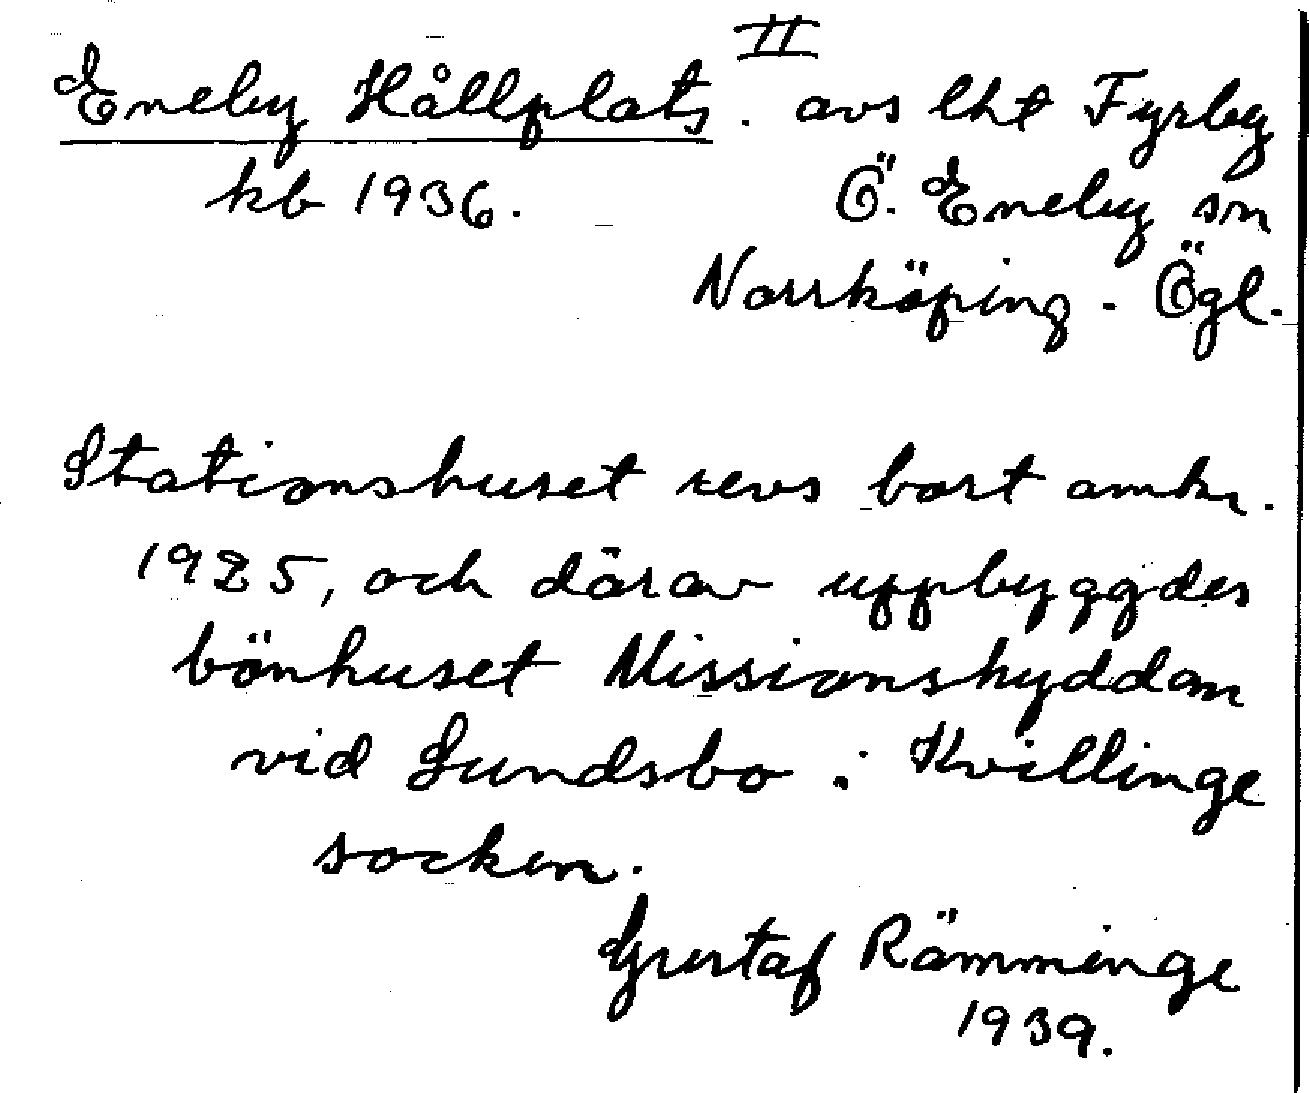 II
Eneby Hållplats. avs lht Fyrby
kb 1936. Ö. Eneby sn
Norrköping. Ögl.
Stationshuset revs bort omkr.
1925, och därav uppbyggdes
bönhuset Missionshyddan
vid Sundsbo i Kvillinge
socken.
Gustaf Rämminge
1939.